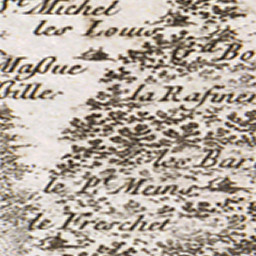 St Michel
les Louis
Gd Bo
Maßue
Billes
la Rafiner
les Bar
le Pt Meins
le Frerchet